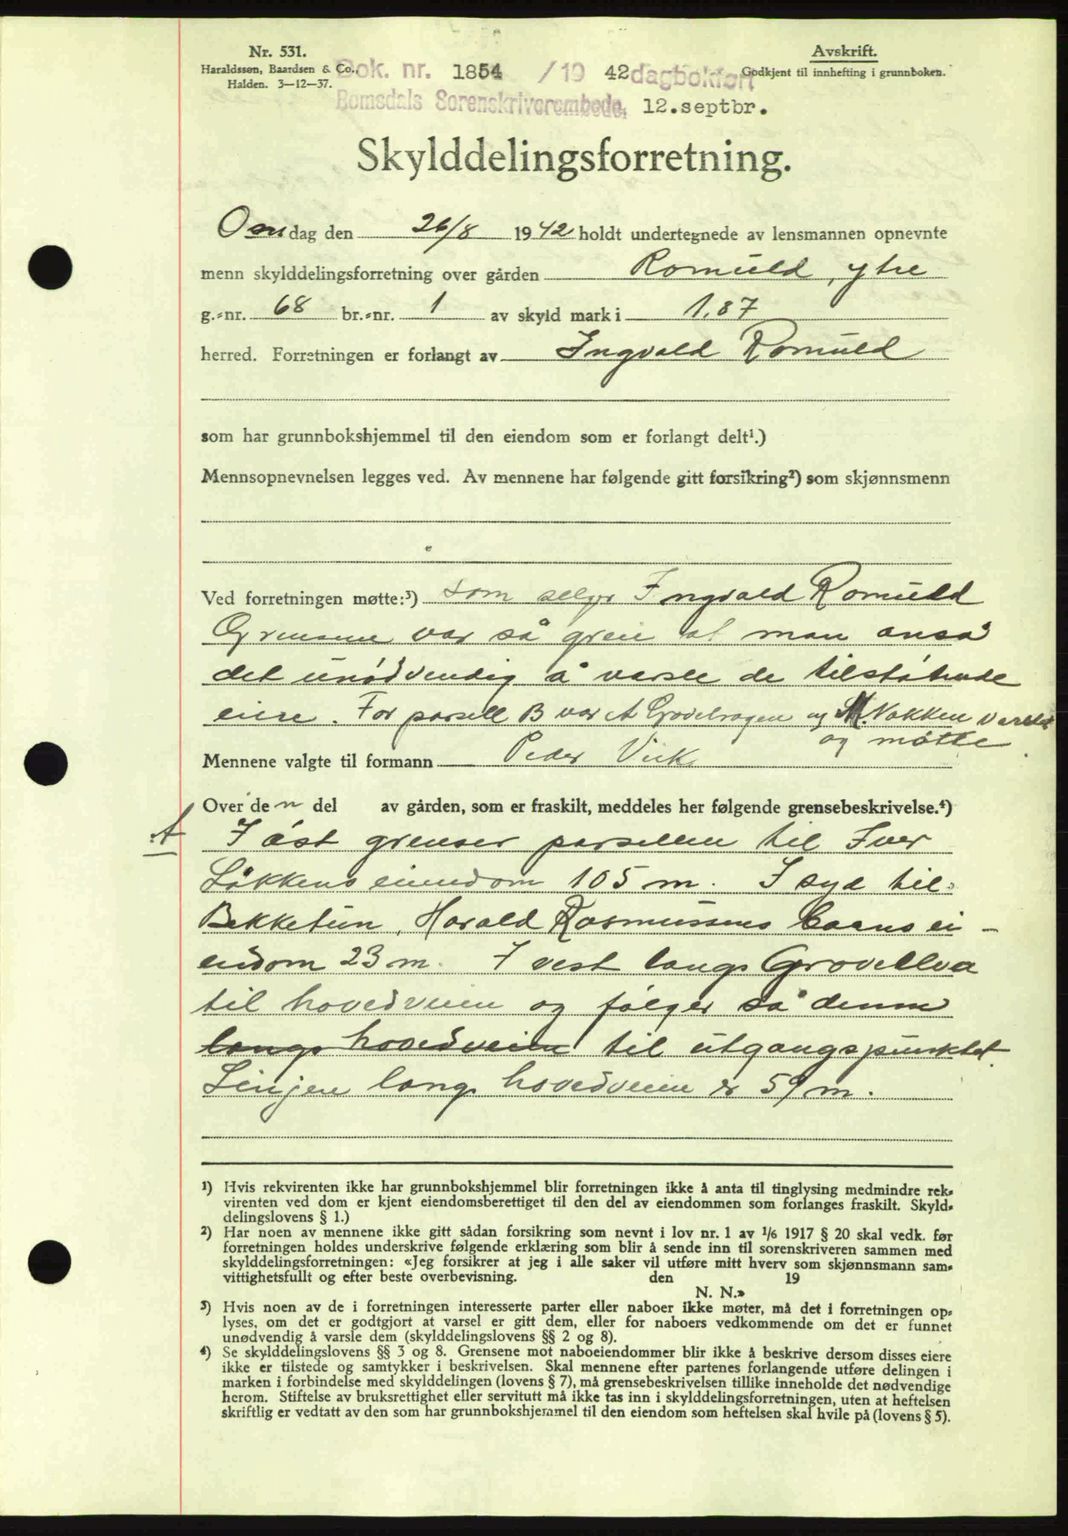 Nr. 531.
Haraldssen, Baardsen & Co.,
Halden. 3—12—37.
Avskrift.
Godkjent til innhefting i grunnboken.
Dok. nr. 1854 /19 42 dagbokført
Romsdals Sorenskriverembede, 12.septbr.
Skylddelingsforretning.
Onsdag den 26/8 1942 holdt undertegnede av lensmannen opnevnte
menn skylddelingsforretning over gården Romuld, ytre
g.-nr. 68 br.-nr. 1 av skyld mark i 1.87
herred. Forretningen er forlangt av Ingvald Romuld
som har grunnbokshjemmel til den eiendom som er forlangt delt¹.)
Mennsopnevnelsen legges ved. Av mennene har følgende gitt forsikring²) som skjønnsmenn
Ved forretningen møtte:³) som selger Ingvald Romuld
Grensene var så grei at man anså
det unødvendig å varsle de tilstøtende
eiere. For parsell B var A Grovehagen og M. Nakken varslet
og møtte.
Mennene valgte til formann Peder Vik
Over den del av gården, som er fraskilt, meddeles her følgende grensebeskrivelse.⁴)
A
I øst grenser parsellen til Iver
Løkkens eiendom 105 m. I syd til
Bekketun, Harald Rasmussens barns ei-
endom 23 m. I vest langs Grovelva
til hovedveien og følger så denne
langs hovedveien til utgangspunktet.
Linjen langs hovedveien er 59 m.
¹) Hvis rekvirenten ikke har grunnbokshjemmel blir forretningen ikke å anta til tinglysing medmindre rek-
virenten ved dom er kjent eiendomsberettiget til den del av eiendommen som forlanges fraskilt. Skyld-
delingslovens § 1.)
²) Har noen av mennene ikke gitt sådan forsikring som nevnt i lov nr. 1 av 1/6 1917 § 20 skal vedk. før
forretningen holdes underskrive følgende erklæring som blir å sende inn til sorenskriveren sammen med
skylddelingsforretningen: «Jeg forsikrer at jeg i alle saker vil utføre mitt hverv som skjønnsmann sam-
vittighetsfullt og efter beste overbevisning. den 19
N. N.»
³) Hvis noen av de i forretningen interesserte parter eller naboer ikke møter, må det i forretningen op-
lyses, om det er godtgjort at varsel er gitt dem, eller for naboers vedkommende om det er funnet
unødvendig å varsle dem (skylddelingslovens §§ 2 og 8).
⁴) Se skylddelingslovens §§ 3 og 8. Grensene mot naboeiendommer blir ikke å beskrive dersom disses eiere
ikke er tilstede og samtykker i beskrivelsen. Skal mennene efter partenes forlangende utføre delingen i
marken i forbindelse med skylddelingen (lovens § 7), må grensebeskrivelsen tillike inneholde det nødvendige
herom. Stiftelse av bruksrettighet eller servitutt må ikke tas inn i skylddelingsforretningen, uten at heftelsen
skriftlig er vedtatt av den som har grunnbokshjemmel til den eiendom som heftelsen skal hvile på (lovens § 5).